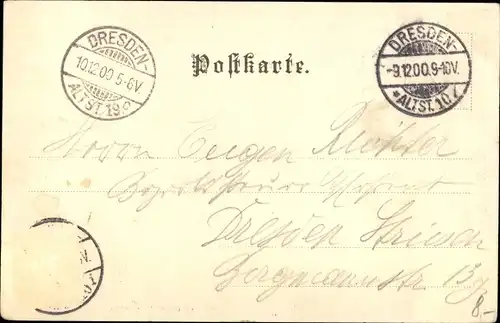 DRESDEN-
10.12.00 5-6V.
ALTST. 19.
Postkarte.
DRESDEN-
-9.12.00.9-10V.
*ALTST.10.
Herrn Eugen Richter
Dresden Striesen
Bergmannstr 13
8.-